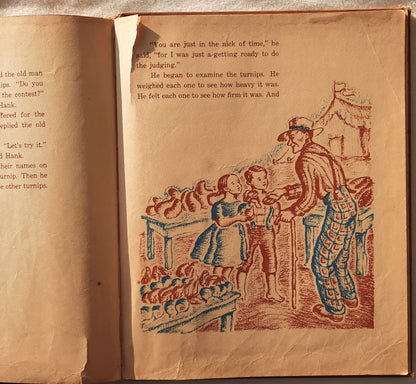 d the old man
ips. "Do you
the contest?"
Hank.
ffered for the
replied the old
"Let's try it."
d Hank.
their names on
urnip. Then he
e other turnips.
"You are just in the nick of time," he
said, "for I was just a-getting ready to do
the judging."
He began to examine the turnips. He
weighed each one to see how heavy it was.
He felt each one to see how firm it was. And